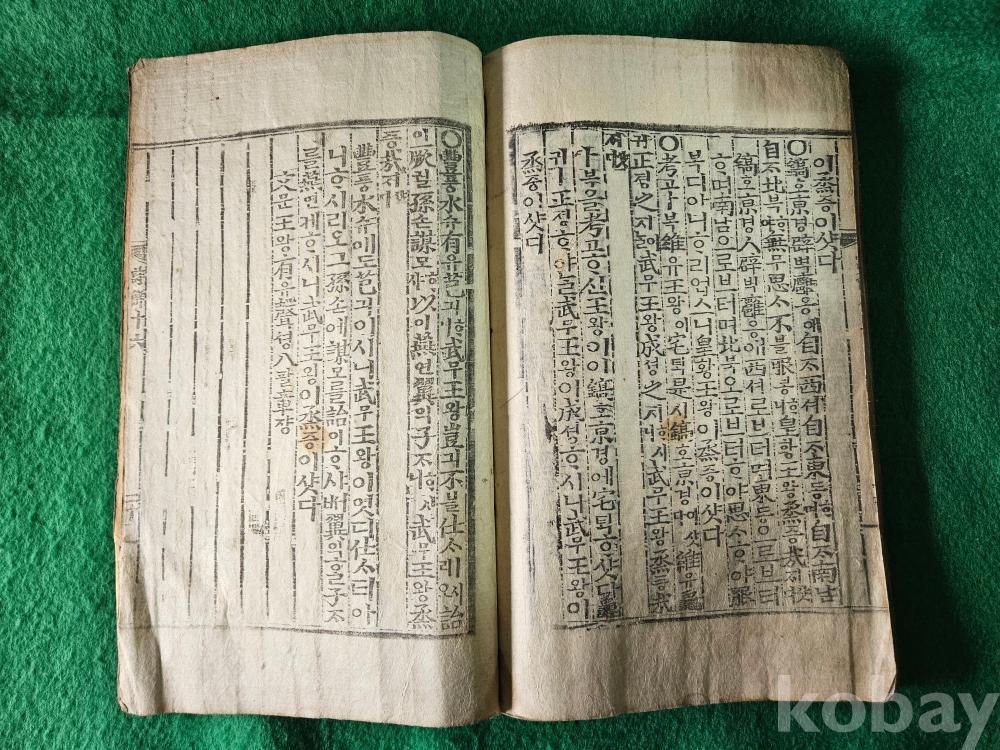 이烝증이샷다
○鎬호京경辟벽廱옹애自ᄌᆞ西셔自ᄌᆞ東동ᄒᆞ며自ᄌᆞ南남
自ᄌᆞ北북ᄒᆞ야無무思ᄉᆞ不블服복ᄒᆞ니皇황王왕烝증哉ᄌᆡ
鎬호京경人辟벽廱옹애西셔로브터며東동으로브터
ᄒᆞ며南남으로브터며北북으로브터ᄒᆞ야思ᄉᆞᄒᆞ야服
복디아니ᄒᆞ리업스니皇황王왕이烝증이샷다
○考고卜복維유王왕이宅ᄐᆡᆨ是시鎬호京경이샷다維유龜
귀正졍之지ᄒᆞ야ᄂᆞᆯ武무王왕成셩之지ᄒᆞ시니武무王왕烝증哉
ᄌᆡ샷다
卜복을考고ᄒᆞ신王왕이이鎬호京경에宅ᄐᆡᆨᄒᆞ샷다龜
귀ㅣ正졍ᄒᆞ야ᄂᆞᆯ武무王왕이成셩ᄒᆞ시니武무王왕이
烝증이샷다
○豐풍水슈有유芑긔ᄒᆞ니武무王왕豈긔不블仕ᄉᆞ시리오詒
이厥궐孫손謀모ᄒᆞ샤以이燕연翼익子ᄌᆞᄒᆞ시니武무王왕烝
증哉ᄌᆡ샷다
豐풍水슈에도芑긔이시니武무王왕이엇디仕ᄉᆞ티아
니ᄒᆞ시리오그孫손에謀모를詒이ᄒᆞ샤ᄡᅥ翼익ᄒᆞᆯ子ᄌᆞ
를燕연케ᄒᆞ시니武무王왕이烝증이샷다
文문王왕有유聲셩八팔章쟝
kobay